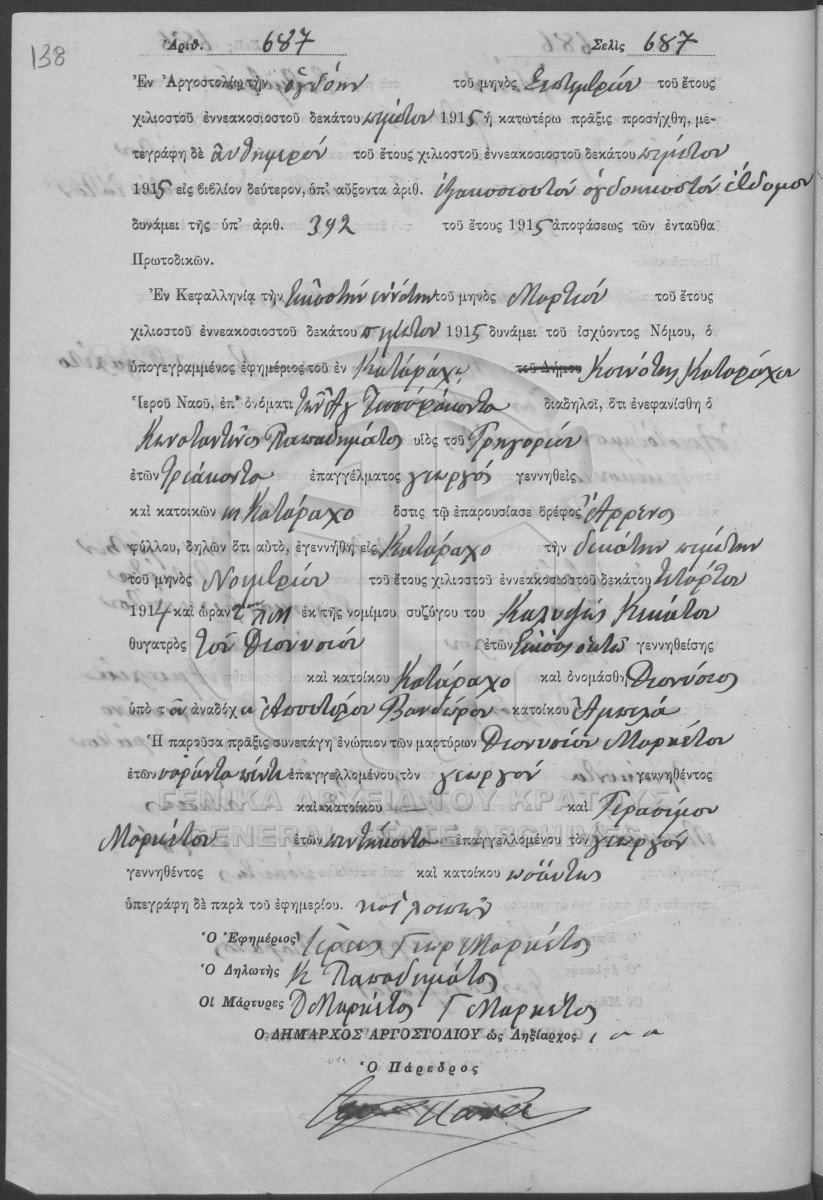 138
Ἀριθ. 687 Σελὶς 687
Ἐν Ἀργοστολίῳ τὴν ὀγδόην τοῦ μηνὸς Σεπτεμβρίου τοῦ ἔτους
χιλιοστοῦ ἐννεακοσιοστοῦ δεκάτου πέμπτου 1915 ἡ κατωτέρω πρᾶξις προσήχθη, με-
τεγράφη δὲ αὐθημερόν τοῦ ἔτους χιλιοστοῦ ἐννεακοσιοστοῦ δεκάτου πέμπτου
1915 εἰς βιβλίον δεύτερον, ὑπ' αὔξοντα ἀριθ. ἑξακοσιοστόν ὀγδοηκοστόν ἕβδομον
δυνάμει τῆς ὑπ' ἀριθ. 392 τοῦ ἔτους 1915 ἀποφάσεως τῶν ἐνταῦθα
Πρωτοδικῶν.
Ἐν Κεφαλληνίᾳ τὴν εἰκοστήν ἐννάτην τοῦ μηνὸς Μαρτίου τοῦ ἔτους
χιλιοστοῦ ἐννεακοσιοστοῦ δεκάτου πέμπτου 1915 δυνάμει τοῦ ἰσχύοντος Νόμου, ὁ
ὑπογεγραμμένος ἐφημέριος τοῦ ἐν Καταράχῳ τοῦ Δήμου Κοινότης Καταράχου
Ἱεροῦ Ναοῦ, ἐπ' ὀνόματι τῶν Ἁγ Τεσσαράκοντα διαδηλοῖ, ὅτι ἐνεφανίσθη ὁ
Κωνσταντῖνος Παπαδημάτος υἱὸς τοῦ Γρηγορίου
ἐτῶν τριάκοντα ἐπαγγέλματος γεωργός γεννηθεὶς
καὶ κατοικῶν εἰς Κατάραχο ὅστις τῷ ἐπαρουσίασε βρέφος Ἄρρενος
φύλλου, δηλῶν ὅτι αὐτὸ, ἐγεννήθη εἰς Κατάραχο τὴν δεκάτην πέμπτην
τοῦ μηνὸς Νοεμβρίου τοῦ ἔτους χιλιοστοῦ ἐννεακοσιοστοῦ δεκάτου τετάρτου
1914 καὶ ὥραν π.μ. ἐκ τῆς νομίμου συζύγου του Καλυψῶς Κεκάτου
θυγατρὸς τοῦ Διονυσίου ἐτῶν εἴκοσι ὀκτώ γεννηθείσης
καὶ κατοίκου Κατάραχο καὶ ὀνομάσθη Διονύσιος
ὑπὸ τοῦ ἀναδόχου Ἀποστόλου Βανδώρου κατοίκου
Ἡ παροῦσα πρᾶξις συνετάγη ἐνώπιον τῶν μαρτύρων Διονυσίου Μαρκέτου
ἐτῶν σαράντα πέντε ἐπαγγελλομένου τὸν γεωργόν γεννηθέντος
καὶ κατοίκου — καὶ Γερασίμου
Μαρκέτου ἐτῶν πεντήκοντα ἐπαγγελλομένου τὸν γεωργόν
γεννηθέντος καὶ κατοίκου ὡσαύτως
ὑπεγράφη δὲ παρὰ τοῦ ἐφημερίου. καί λοιπῶν
Ὁ Ἐφημέριος Ἱερεύς Γεώρ Μαρκέτος
Ὁ Δηλωτὴς Κ Παπαδημάτος
Οἱ Μάρτυρες Δ Μαρκέτος Γ Μαρκέτος
Ο ΔΗΜΑΡΧΟΣ ΑΡΓΟΣΤΟΛΙΟΥ ὡς Ληξίαρχος
Ὁ Πάρεδρος
ΓΕΝΙΚΑ ΑΡΧΕΙΑ ΤΟΥ ΚΡΑΤΟΥΣ
GENERAL STATE ARCHIVES